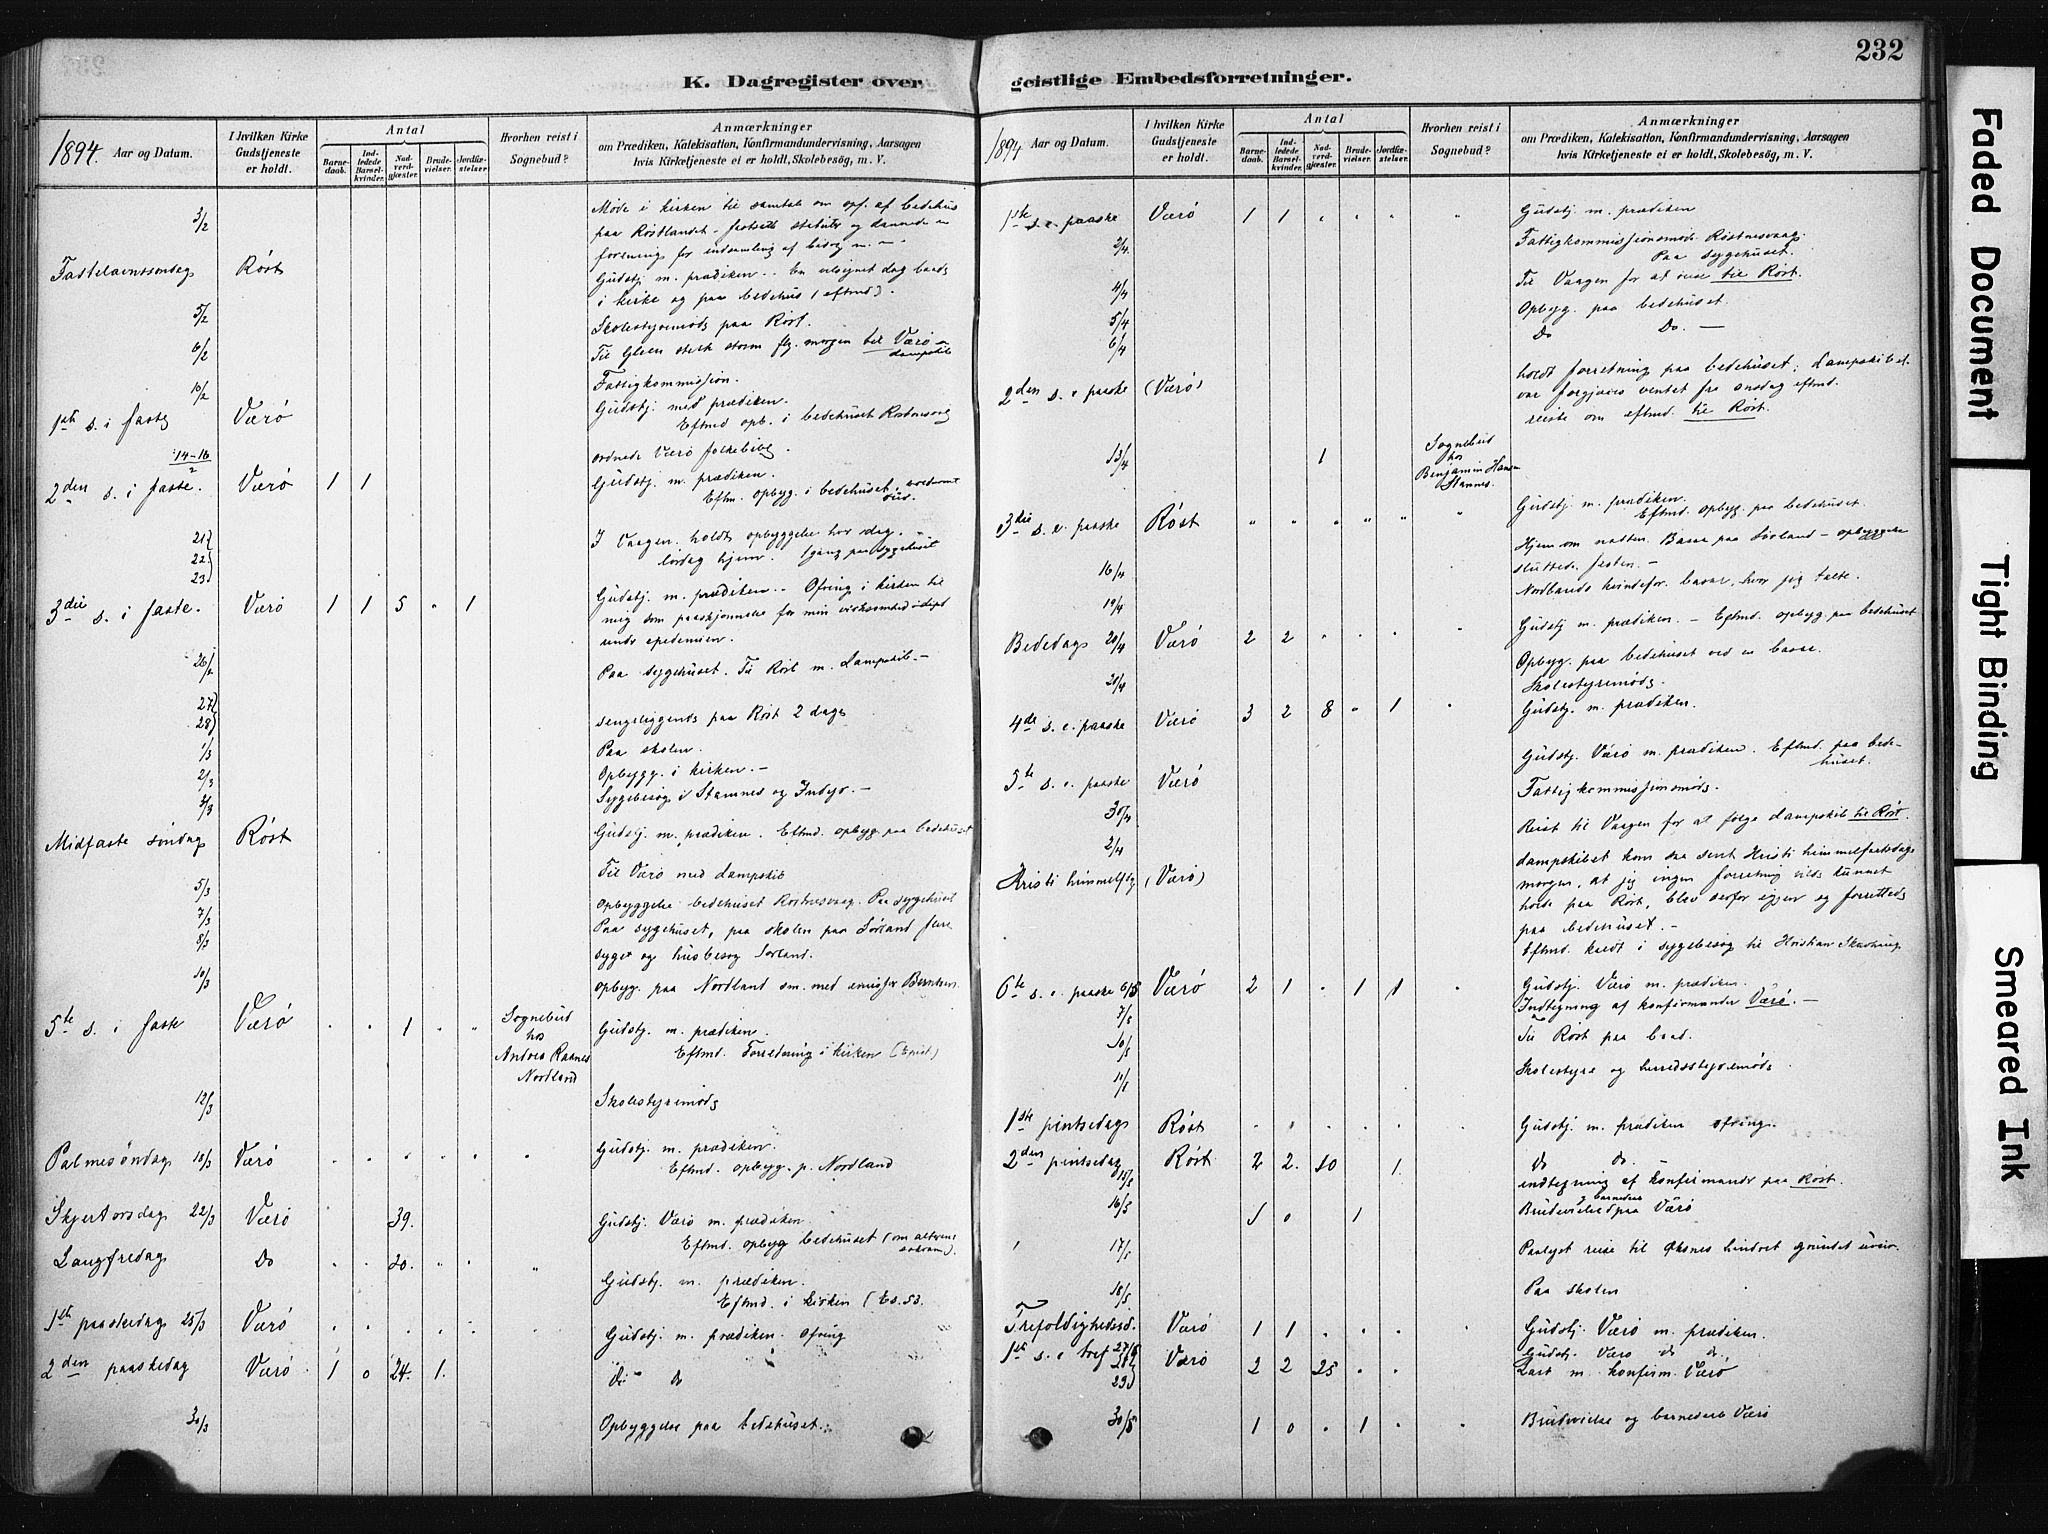 232
K. Dagregister over
1894. Aar og Datum.
I hvilken Kirke Gudstjeneste er holdt.
Antal
Barnedaab.
Indledede Barselkvinder.
Nadverdgjæster.
Brudevielser.
Jordfæstelser.
Hvorhen reist i Sognebud?
Anmærkninger
om Prædiken, Katekisation, Konfirmandundervisning, Aarsagen
hvis Kirketjeneste ei er holdt, Skolebesög, m. V.
3/2 Møde i kirken til samtale om opf. af bedehus
paa Røstlandet - fastsatte statuter og dannede en
forening for indsamling af bidrag m. —
Fastelavnssøndag Røst Gudstj. m. prædiken. En velsignet dag baade
i kirke og paa bedehus (eftmd).
5/2 Skolestyremøde paa Røst.
6/2 Til Gleen sterk storm flg. morgen til Værø
dampskib
10/2 Fattigkommission.
1ste s. i faste Værø Gudstj. med prædiken.
Eftmd opb. i bedehuset Røstnesvaag
14-16/2 ordnede Værø folkebibl.
2den s. i faste. Værø 1 1 Gudstj. m. prædiken.
Eftmd. opbyg. i bedehuset
21 I Vaagen holdt opbyggelse hver dag. -
22 lørdag hjem. 1 gang paa sygehuset
23
3die s. i faste. Værø 1 1 5 " 1 Gudstj. m. prædiken. - Ofring i kirken til
mig som paaskjønnelse for min virksomhed
under epidemien.
26/2 Paa sygehuset. Til Røst m. Dampskib. -
27
28 sengeliggende paa Røst 2 dage
1/3 Paa skolen.
2/3 Opbygg. i kirken. -
3/3 Sygebesøg i Stamnes og Indyr. -
Midfaste søndag Røst Gudstj. m. prædiken. Eftmd. opbyg. paa bedehuset
5/3 Til Værø med dampskib
7/3 opbyggelse bedehuset Røstnesvaag. Paa sygehuset
8/3 Paa sygehuset, paa skolen paa Sørland flere
syge og husbesøg Sørland.
10/3 opbyg. paa Nordland sm. med emissær Berntsen.
5te s. i faste Værø . . 1 " " Sognebud
hos
Andrea Raanes
Nordland
Gudstj. m. prædiken.
Eftmd. Foredrag i kirken
12/3 Skolestyremøde
Palmesøndag 18/3 Værø Gudstj. m. prædiken.
Eftmd. opbyg. p. Nordland
Skjertorsdag 22/3 Værø 39. Gudstj. Værø m. prædiken
Eftmd. opbyg bedehuset (om alterens
sakram).
Langfredag Do 20. Gudstj. m. prædiken.
Eftmd. i kirken (Es. 53.
1ste paaskedag 25/3 Værø Gudstj. m. prædiken. ofring
2den paaskedag Værø 1 0 24. 1. Do do
30/3 Opbyggelse paa bedehuset.
geistlige Embedsforretninger.
1894 Aar og Datum.
I hvilken Kirke Gudstjeneste er holdt.
Antal
Barnedaab.
Indledede Barselkvinder.
Nadverdgjæster.
Brudevielser.
Jordfæstelser.
Hvorhen reist i Sognebud?
Anmærkninger
om Prædiken, Katekisation, Konfirmandundervisning, Aarsagen
hvis Kirketjeneste ei er holdt, Skolebesög, m. V.
1ste s. e. paaske Værø 1 1 " " " " Gudstj. m. prædiken
2/4. Fattigkommissionsmøde Røstnesvaag.
Paa sygehuset.
4/4 Til Vaagen for at reise til Røst.
5/4 Opbyg. paa bedehuset.
6/4 Do Do. —
2den s. e paaske (Værø) holdt forretning paa bedehuset; Dampskibet
var forgjæves ventet fra onsdag eftmd.
reiste om eftmd. til Røst.
13/4 1 Sognebud
hos
Benjamin Hansen
Stamnes.
3die s. e. paaske Røst " " " " " " Gudstj. m. prædiken
Eftmd. opbyg. paa bedehuset.
16/4 Hjem om natten. Basar paa Sørland - opbyggelse
sluttede festen. -
19/4 Nordlands kvindefor. basar, hvor jeg talte.
Bededag 20/4 Værø 2 2 Gudstj m. prædiken - Eftmd. opbyg. paa bedehuset
21/4 Opbyg. paa bedehuset ved en basar.
Skolestyremøde.
4de s. e. paaske Værø 3 2 8 " 1 Gudstj. m. prædiken.
5te s. e. paaske Værø Gudstj. Værø m. prædiken. Eftmd. paa bedehuset.
30/4 Fattigkommissionsmøde.
2/4 Reist til Vaagen for at følge dampskib til Røst.
Kristi himmelfg (Værø) dampskibet kom saa sent Kristi himmelfartsdags
morgen, at jeg ingen forretning vilde kunnet
holde paa Røst, blev derfor igjen og forrettede
paa bedehuset. -
Eftmd. kaldt i sygebesøg til Kristian
6te s. e. paaske 6/5 Værø 2 1 " 1 1 Gudstj. Værø m. prædiken.
7/5 Indtegning af konfirmander Værø. —
10/5 Til Røst paa baad.
11/5 Skolestyre og herredsstyremøde.
1ste pintsedag Røst Gudstj. m. prædiken ofring.
2den pintsedag Røst 2 2. 10 1. do do. —
15/5 indtegning af konfirmander paa Røst.
16/5 1 0 1 Brudevielse og barnedaab paa Værø
17/5 Paalyst reise til Øksnes hindret grundet uveir.
18/5 Paa skolen
Trefoldighedssd. Værø 1 1 Gudstj. Værø m. prædiken.
1ste s. e tref 27/5 Værø 2 2 25 Gudstj. Værø do do.
28
29 Læst m. konfirm. Værø
30/5 1 0 . 1 Brudevielse og barnedaab Værø
Faded Document
Tight Binding
Smeared Ink